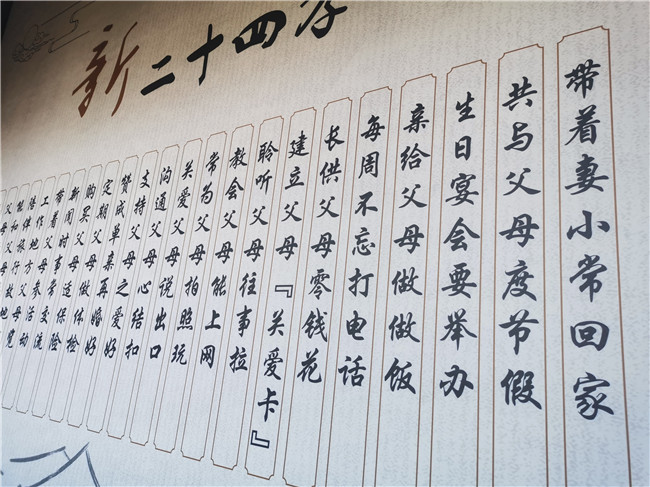 新二十四孝
带着妻小常回家
共与父母度节假
生日宴会要举办
亲给父母做做饭
每周不忘打电话
长供父母零钱花
建立父母『关爱卡』
聆听父母往事拉
教会父母能上网
常为父母拍照玩
关爱父母说出口
沟通父母心结扣
支持父母之爱好
赞成单亲再婚好
定期父母做体检
购买父母适保险
新闻时事常交流
带着父母参活动